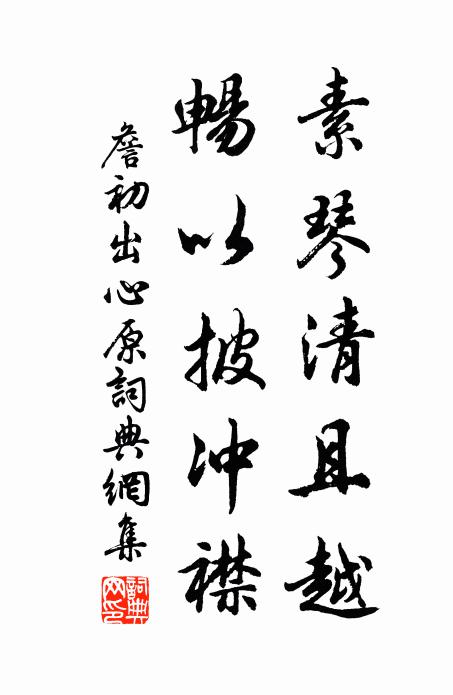 素琴清且越
暢以披冲襟
詹初出心原詞典網集
詞典網印